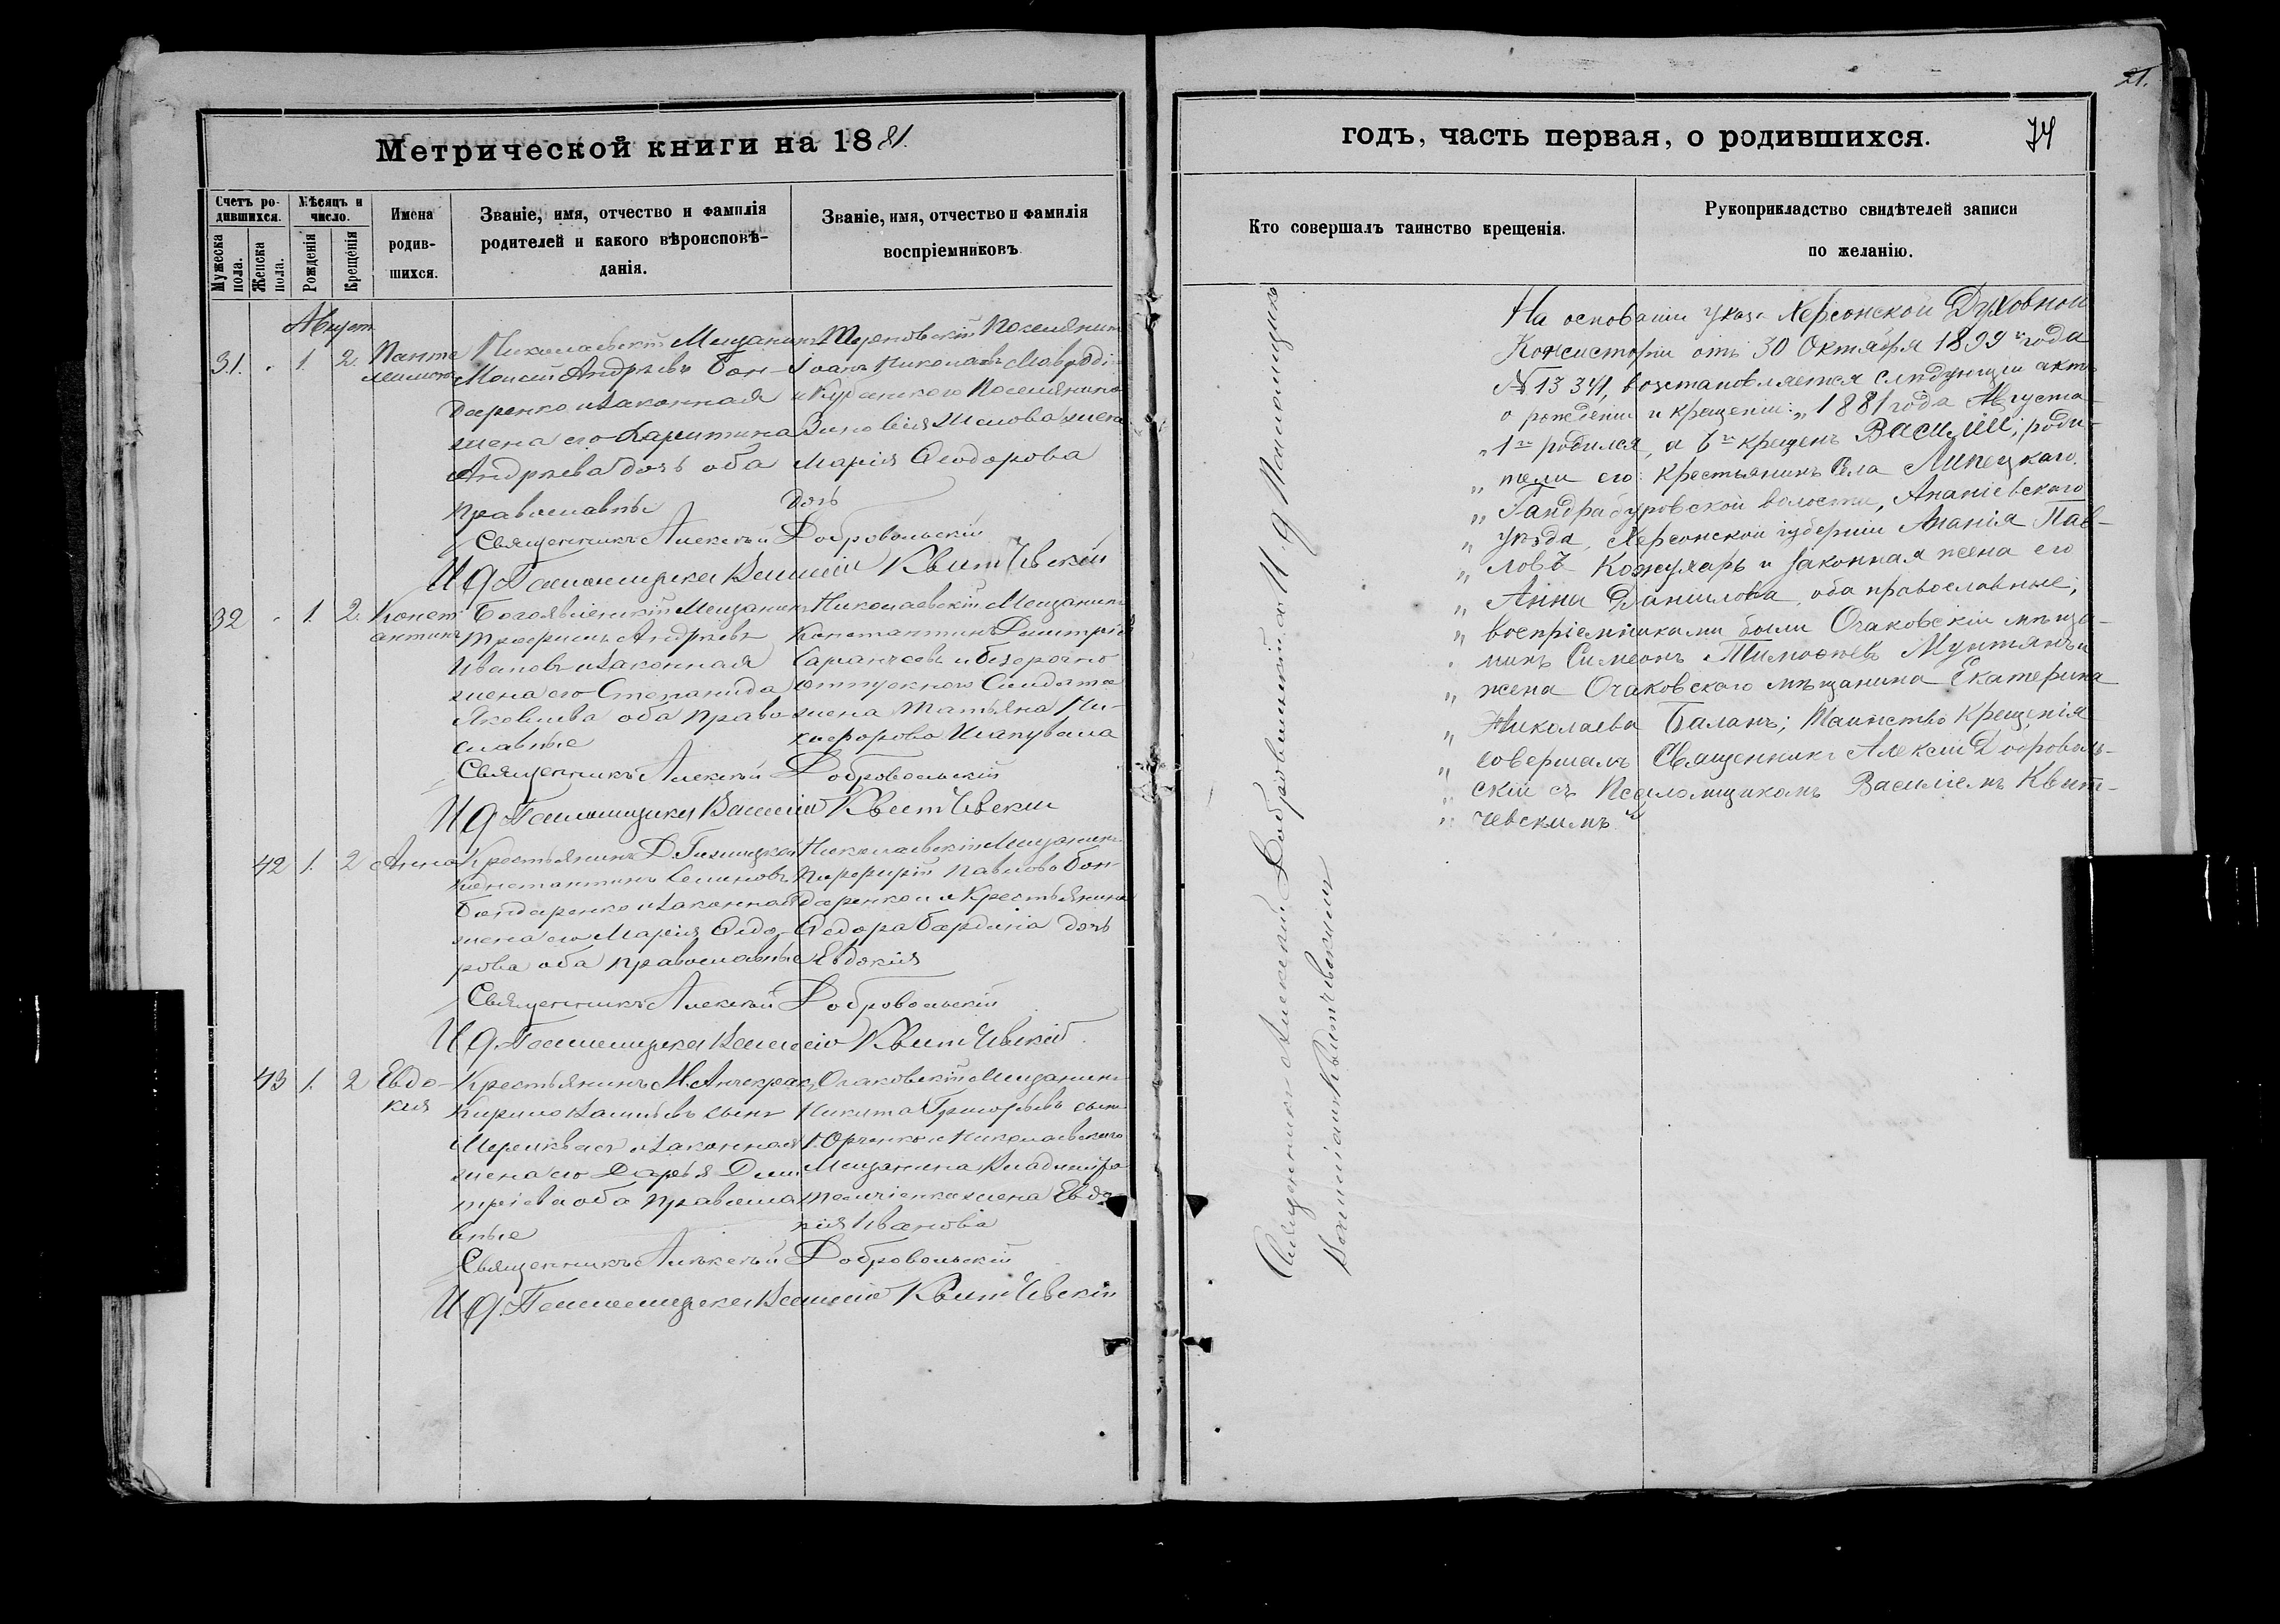 21.
Метрической книги на 1881.
Счетъ родившихся.
Мужеска пола.
Женска пола.
Мѣсяцъ и число.
Рожденія
Крещенія
Имена родившихся.
Званіе, имя, отчество и фамилія
родителей и какого вѣроисповѣ-
данія.
Званіе, имя, отчество и фамилія
воспріемниковъ
Августъ
31. 1. 2. Панте
леимонъ
Николаевскій Мещанинъ
Моисей Андреевъ Бон-
даренко и законная
жена его Харитина
Андреева дочь оба
православные
Терновскій Поселянинъ
Іоанъ Николаевъ Мавроді
и Кубанскаго Поселянина
Зиновія жена
Марія Ѳеодорова
дочь
Священникъ Алексѣй Добровольскій
И д. Псаломщика Василій Квитчевскій
32 1. 2. Конст
антинъ
Богоявленскій Мещанинъ
Трофимъ Андреевъ
Ивановъ и законная
жена его Степанида
Яковлева оба право-
славные
Николаевскій Мещанинъ
Константинъ Дмитріе
и безсрочно
отпускнаго Солдата
жена Татьяна Ни-
кифорова Шаповала
Священникъ Алексѣй Добровольскій
И д. Псаломщика Василій Квитчевскій
42 1. 2 Анна
Крестьянинъ
Константинъ Семиновъ
Бондаренко и законная
жена его Марія Ѳедо-
рова оба православные
Николаевскій Мещанинъ
Порфирій Павловъ Бон-
даренко и Крестьянина
Ѳедора дочь
Евдокія
Священникъ Алексѣй Добровольскій
И д. Псаломщика Василій Квитчевскій
43 1. 2 Евдо-
кія
Крестьянинъ М. Анчекрак
Кирило Васильевъ сынъ
и законная
жена его Дарья Дми
тріева оба правосла
вные
Очаковскій Мещанинъ
Никита Григорьевъ сынъ
Юрченко и Николаевскаго
Мещанина Владиміра
жена Евдо
кія Иванова
Священникъ Алексѣй Добровольскій
И д. Псаломщика Василій Квитчевскій
годъ, часть первая, о родившихся.
74
Кто совершалъ таинство крещенія.
Рукоприкладство свидѣтелей записи
по желанію.
Священникъ Алексѣй Добровольскій съ И. д Псаломщика
Василіемъ Квитчевскимъ
На основаніи указа Херсонской Духовной
Консисторіи отъ 30 Октября 1899 года
№ 13341, возстановляется слѣдующій актъ
о рожденіи и крещеніи: „1881 года Августа
„ 1го родился, а 6го крещенъ Василій; роди-
„ тели его: крестьянинъ села Липецкаго
„ Гандрабуровской волости, Ананіевскаго
„ уѣзда, Херсонской губерніи Ананія Пав-
„ ловъ Кожухарь и законная жена его
„ Анна Данилова, оба православные;
„ воспріемниками были Очаковскій мѣща-
„ нинъ Симеонъ Тимофеевъ Мунтянъ и
„ жена Очаковского мѣщанина Екатерина
„ Николаева Баланъ; Таинство Крещенія
„ совершалъ Священникъ Алексій Доброволь-
„ скій съ Псаломщикомъ Василіемъ Квит-
„ чевскимъ“